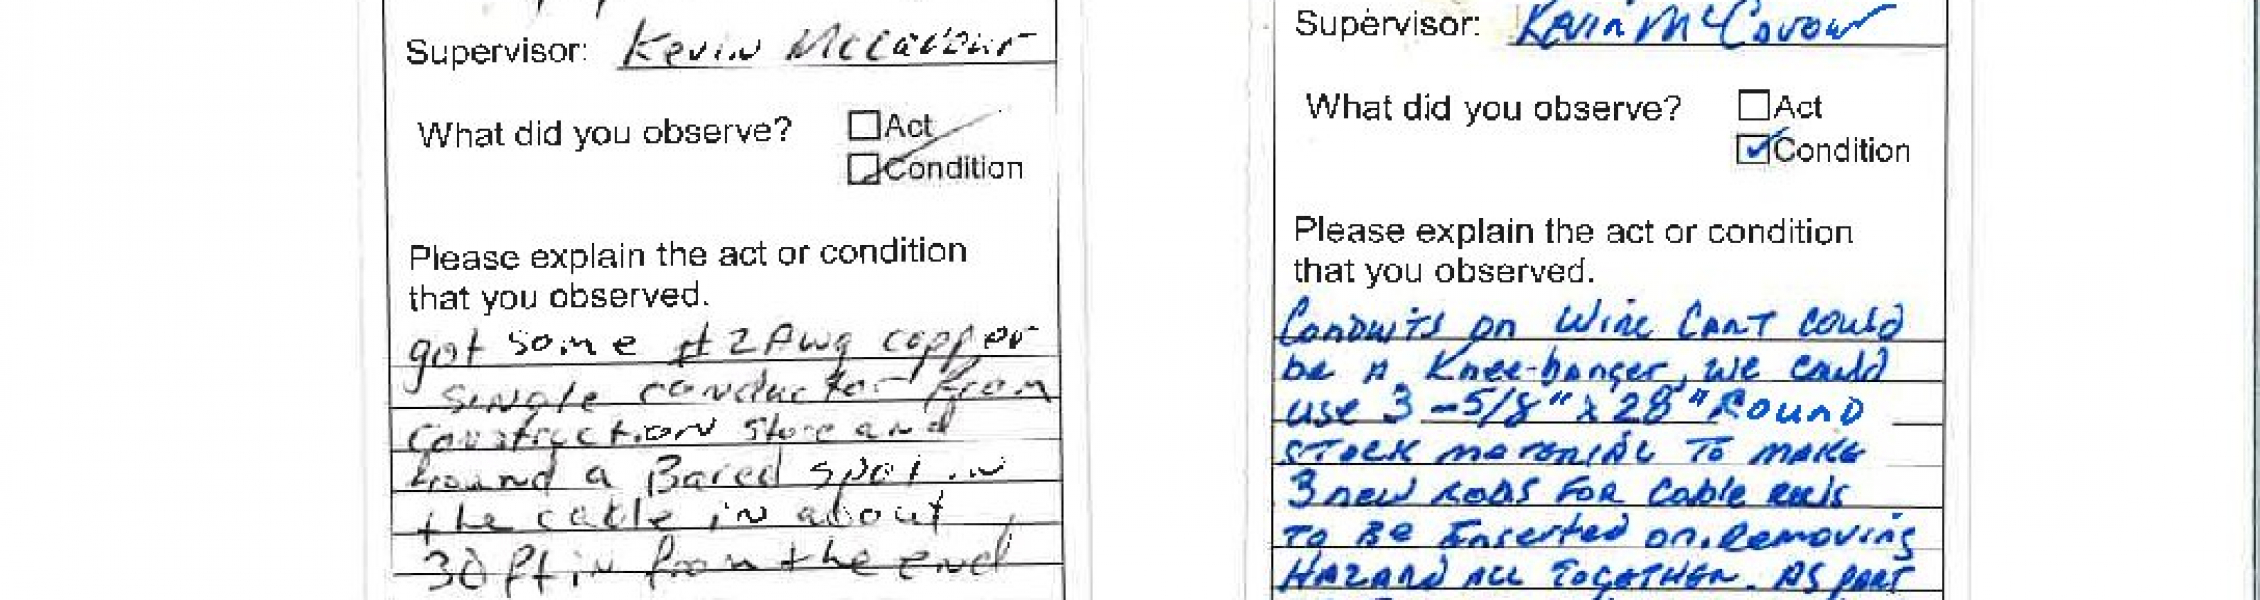 Supervisor: Kevin McCavour
What did you observe? Act
Condition
Please explain the act or condition
that you observed.
got some #2 Awg copper
single conductor from
Construction store and
found a Bared spot in
the cable in about
30 ft in from the end
Supervisor: Kevin McCavour
What did you observe? Act
Condition
Please explain the act or condition
that you observed.
Conduits on Wire Cart could
be a Knee-banger, we could
use 3 - 5/8" x 28" Round
stock material to make
3 new rods for cable reels
to be Inserted on. Removing
Hazard all together. As part